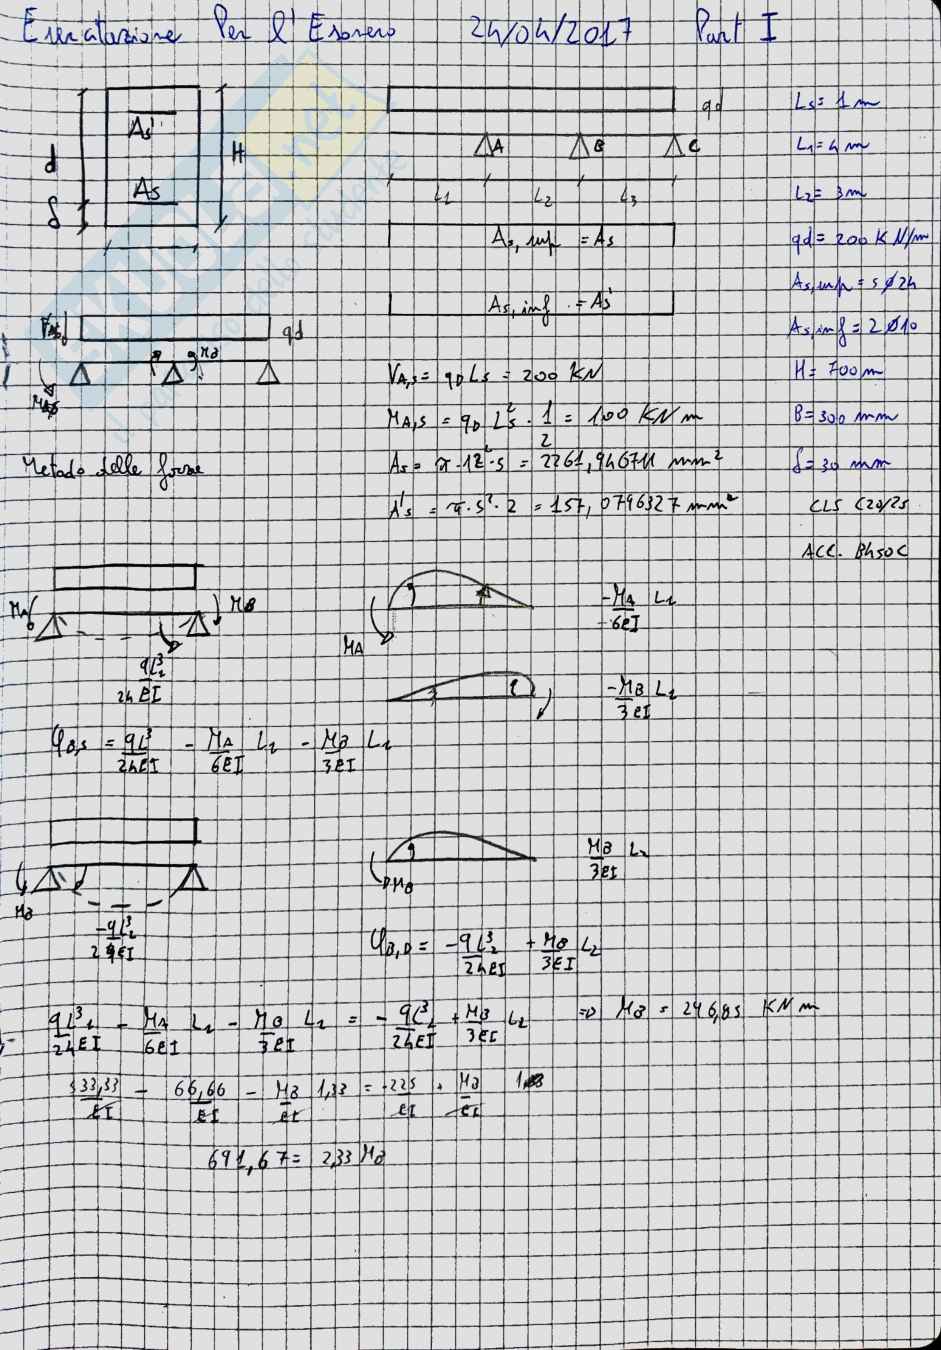 Esercitazione Per l'Esonero 24/04/2017 Part I
As'
d
H
As
δ
qd
A B C
L1 L2 L3
As,sup = As
As,inf = As'
Ls = 1 m
L1 = 4 m
L2 = 3 m
qd = 200 KN/m
As,sup = 5 Ø 24
As,inf = 2 Ø 10
H = 700 m
B = 300 mm
δ = 30 mm
CLS C20/25
ACC. B450C
qd
MB
VA,s = qD Ls = 200 KN
MA,s = qD Ls² · 1/2 = 100 KN m
As = π · 12² · 5 = 2261,946711 mm²
A's = π · 5² · 2 = 157,0796327 mm²
Metodo delle forze
MA MB
qL1³/24EI
MA
-MA/6EI L1
-MB/3EI L1
φB,S = qL³/24EI - MA/6EI L1 - MB/3EI L1
MB
-qL2³/24EI
MB
MB/3EI L2
φB,D = -qL2³/24EI + MB/3EI L2
qL1³/24EI - MA/6EI L1 - MB/3EI L1 = -qL2³/24EI + MB/3EI L2 => MB = 296,85 KN m
533,33/EI - 66,66/EI - MB/EI 1,33 = -225/EI + MB/EI
691,67 = 2,33 MB